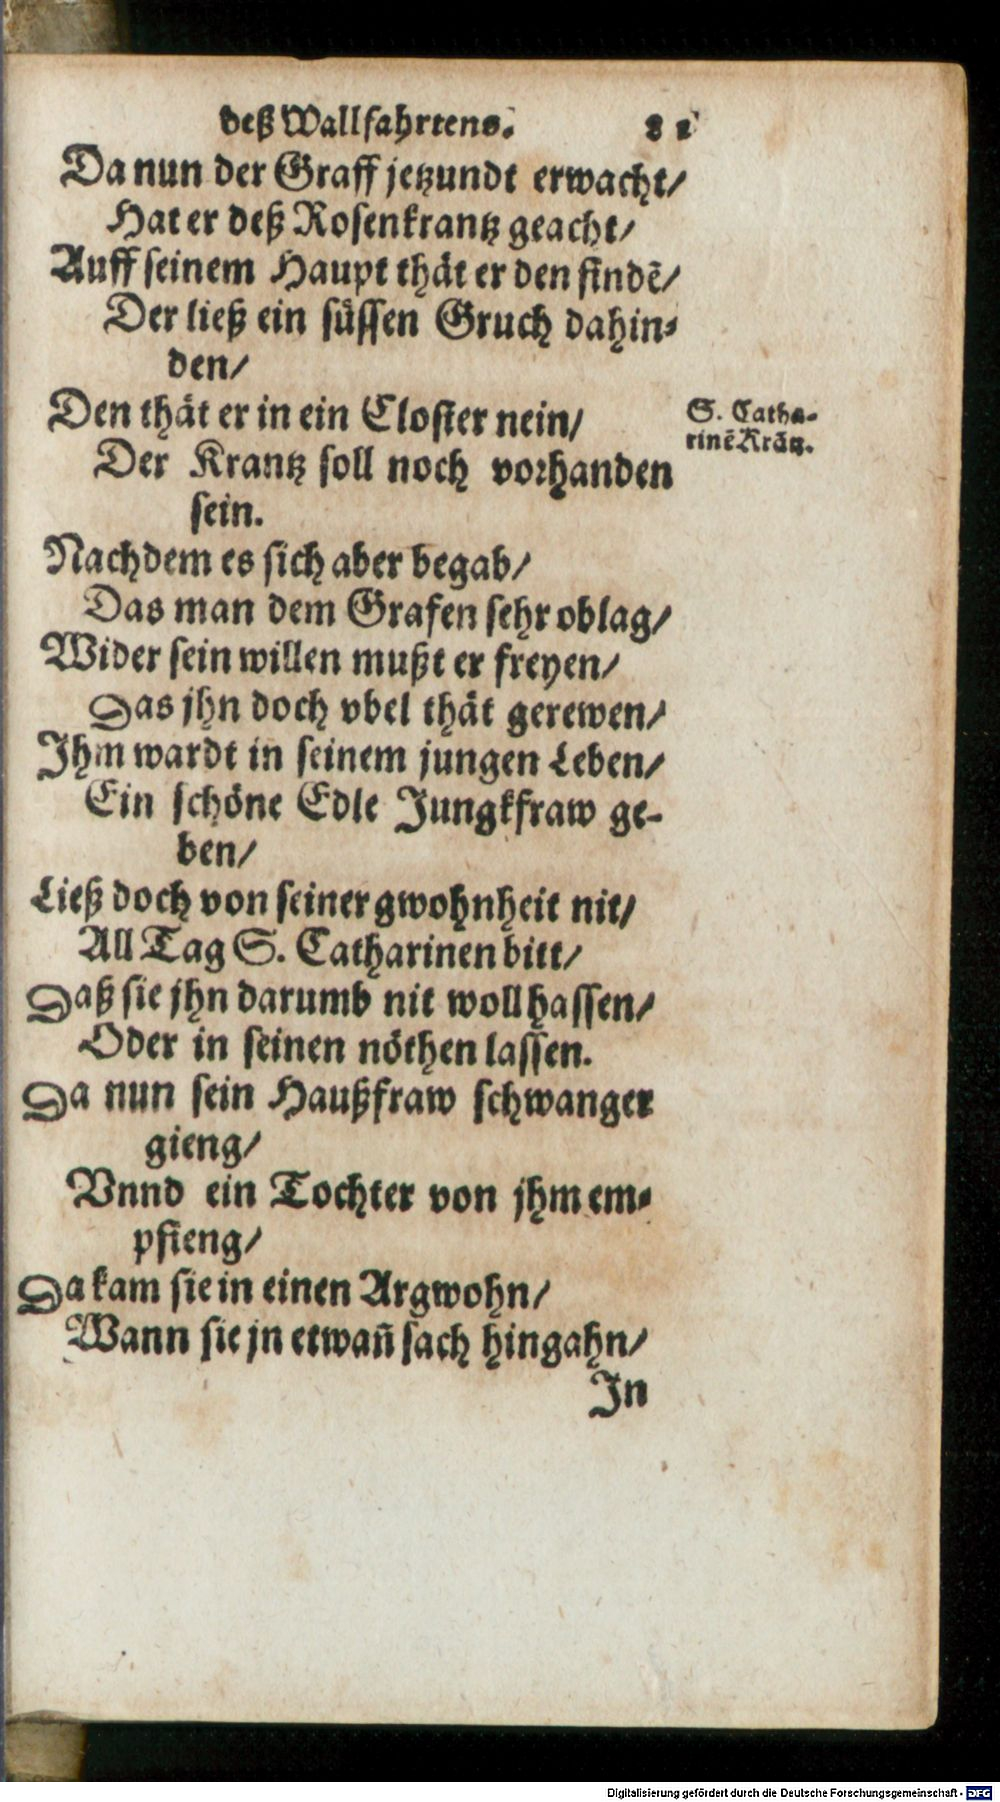 deß Wallfahrtens. 81
Da nun der Graff jetzundt erwacht/
Hat er deß Rosenkrantz geacht/
Auff seinem Haupt thät er den findē/
Der ließ ein süssen Gruch dahin-
den/
Den thät er in ein Closter nein/
S. Catha-
rinē Krātz.
Der Krantz soll noch vorhanden
sein.
Nachdem es sich aber begab/
Das man dem Grafen sehr oblag/
Wider sein willen mußt er freyen/
Das jhn doch vbel thät gerewen/
Ihm wardt in seinem jungen Leben/
Ein schöne Edle Jungkfraw ge-
ben/
Ließ doch von seiner gwohnheit nit/
All Tag S. Catharinen bitt/
Daß sie jhn darumb nit woll hassen/
Oder in seinen nöthen lassen.
Da nun sein Haußfraw schwanger
gieng/
Vnnd ein Tochter von jhm em-
pfieng/
Da kam sie in einen Argwohn/
Wann sie jn etwañ sach hingahn/
In
Digitalisierung gefördert durch die Deutsche Forschungsgemeinschaft - DFG